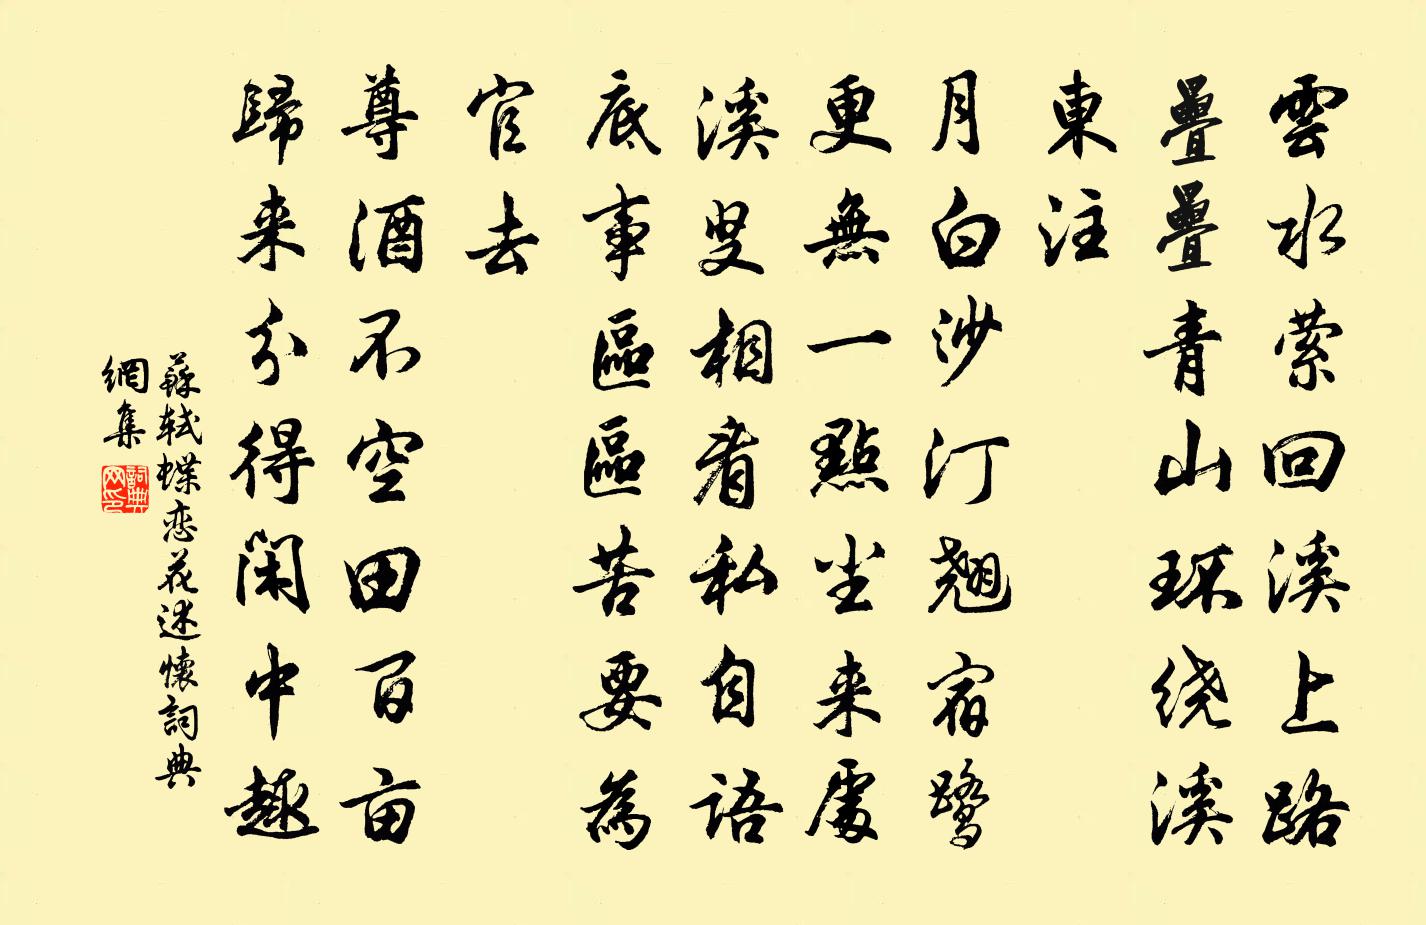 雲水萦回溪上路
疊疊青山環绕溪
東注
月白沙汀翘宿鹭
更無一點尘来處
溪叟相看私自語
底事區區苦要為
官去
尊酒不空田百亩
歸来分得閑中趣
蘇轼蝶恋花述懷詞典
網集
詞典网印